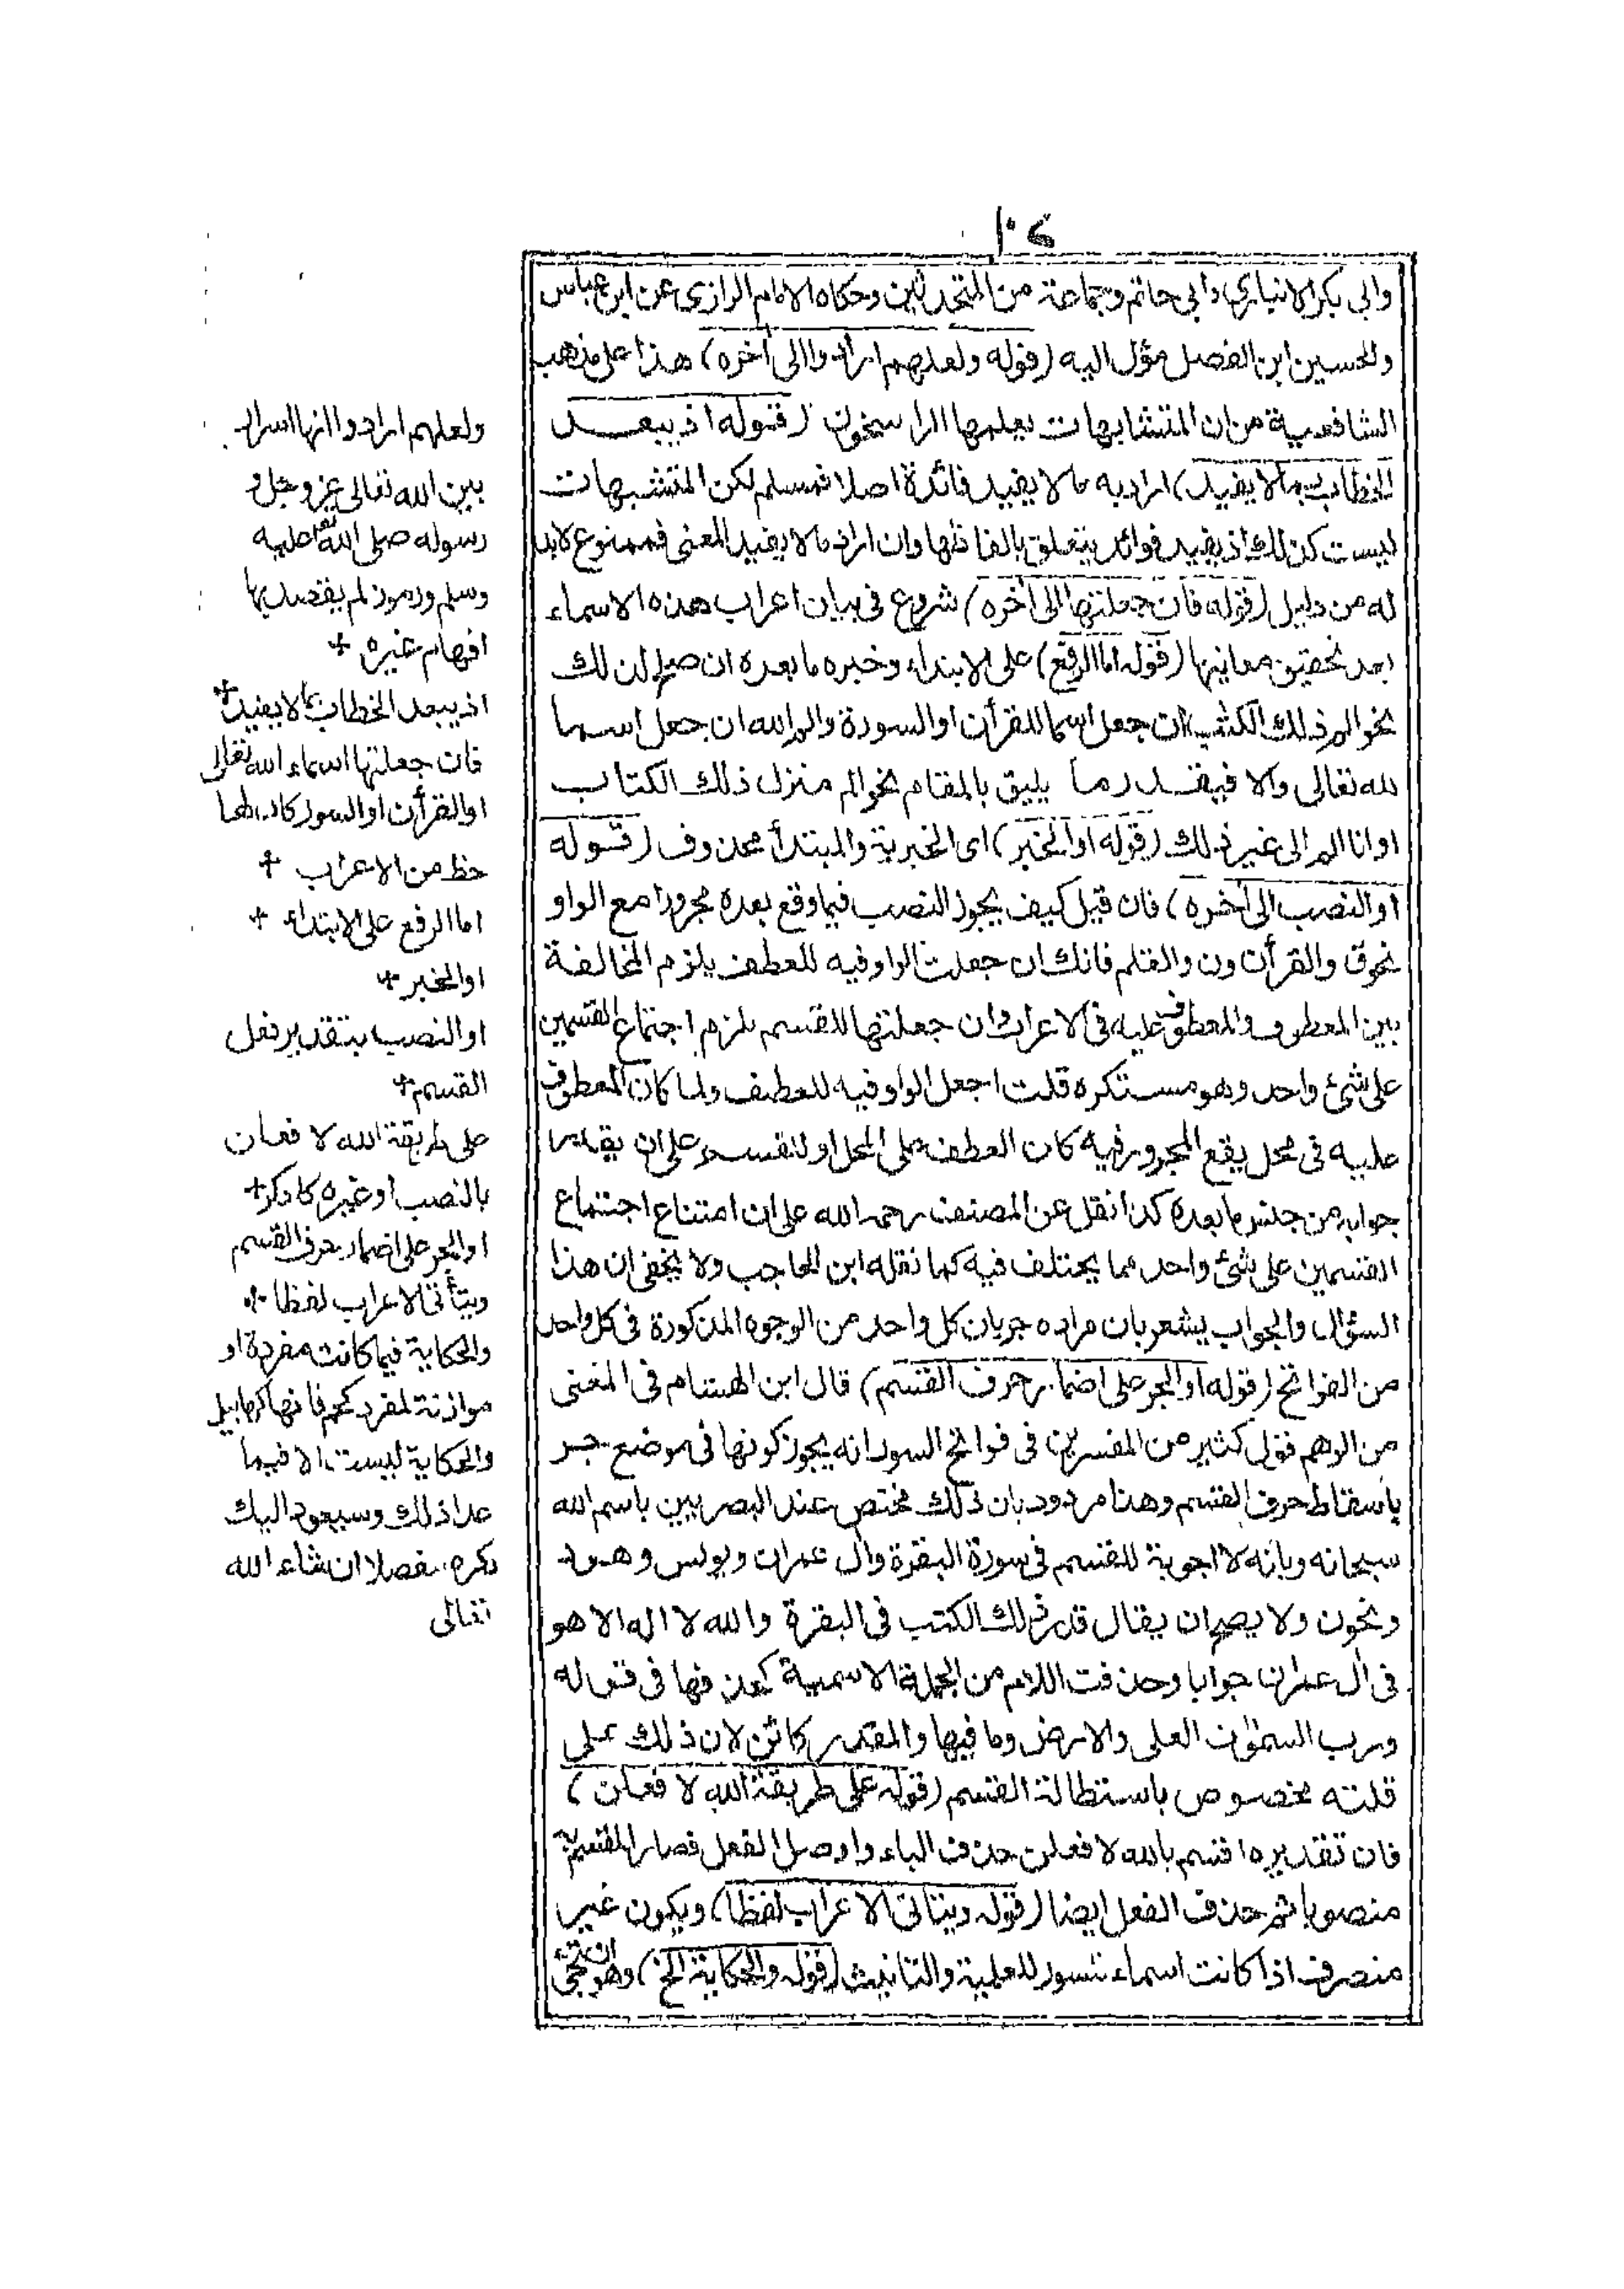 ١٠٤
وابى بكر الانباري وابى حاتم وجماعة من المتحدثين وحكاه الامام الرازى عن ابن عباس
والحسين ابن الفضل مؤل اليه (قوله ولعلهم ارادوا الى آخره) هذا على مذهب
الشافعية من ان المتشابهات يعلمها الراسخون (قوله اذ يبعد
الخطاب بما لا يفيد) اراد به ما لا يفيد فائدة اصلا فمسلم لكن المتشبهات
ليست كذلك اذ يفيد فوائد يتعلق بالفاظها وان اراد ما لا يفيد المعنى فممنوع لابد
له من دليل (قوله فان جعلتها الى آخره) شروع فى بيان اعراب هذه الاسماء
بعد تحقيق معانيها (قوله اما الرفع) على الابتداء وخبره ما بعده ان صلح لذلك
نحو الم ذلك الكتب ان جعل اسما للقرآن او السورة والم الله ان جعل اسما
لله تعالى والا فيقدر ما يليق بالمقام نحو الم منزل ذلك الكتاب
او انا الم الى غير ذلك (قوله او الخبر) اى الخبرية والمبتدأ محذوف (قوله
او النصب الى آخره) فان قيل كيف يجوز النصب فيما وقع بعده مجرورا مع الواو
نحو ق والقرأن ون والقلم فانك ان جعلت الواو فيه للعطف يلزم المخالفة
بين المعطوف والمعطوف عليه فى الاعراب وان جعلتها للقسم يلزم اجتماع القسمين
على شئ واحد وهو مستكره قلت اجعل الواو فيه للعطف ولما كان المعطوف
عليه فى محل يقع المجرور فيه كان العطف على المحل او للقسم على ان يقدر
جوابه من جنس ما بعده كذا نقل عن المصنف رحمه الله على ان امتناع اجتماع
القسمين على شئ واحد مما يختلف فيه كما نقله ابن الحاجب ولا يخفى ان هذا
السؤال والجواب يشعر بان مراده جريان كل واحد من الوجوه المذكورة فى كل واحد
من الفواتح (قوله او الجر على اضمار حرف القسم) قال ابن الهشام فى المغنى
من الوهم قول كثير من المفسرين فى فواتح السور انه يجوز كونها فى موضع جر
باسقاط حرف القسم وهذا مردود بان ذلك مختص عند البصريين باسم الله
سبحانه وبانه لا اجوبة للقسم فى سورة البقرة وآل عمران ويونس وهود
ونحون ولا يصح ان يقال قدر ذلك الكتب فى البقرة والله لا اله الا هو
فى آل عمران جوابا وحذفت اللام من الجملة الاسمية كحذفها فى قوله
ورب السموات العلى والارض وما فيها والمقدر كائن لان ذلك على
قلته مخصوص باستطالة القسم (قوله على طريقة الله لا فعلن)
فان تقديره اقسم بالله لا فعلن حذف الباء واوصل الفعل فصار المقسم به
منصوبا ثم حذف الفعل ايضا (قوله ويتاتى الاعراب لفظا) ويكون غير
منصرف اذا كانت اسماء للسور للعلمية والتانيث (قوله والحكاية الخ) وهو ان تجئ
ولعلهم ارادوا انها اسرار
بين الله تعالى عز وجل و
رسوله صلى الله تعا عليه
وسلم ورموز لم يقصد بها
افهام غيره +
اذ يبعد الخطاب بما لا يفيد +
فان جعلتها اسماء الله تعالى
او القرأن او السور كان لها
حظ من الاعراب +
اما الرفع على الابتداء +
او الخبر +
او النصب بتقدير فعل
القسم +
على طريقة الله لا فعلن
بالنصب او غيره كاذكر +
او الجر على اضمار حرف القسم
ويتأتى الاعراب لفظا +
والحكاية فيما كانت مفردة او
موازنة لمفرد كحم فانها كهابيل
والحكاية ليست الا فيما
عدا ذلك وسيعود اليك
ذكره مفصلا ان شاء الله
تعالى